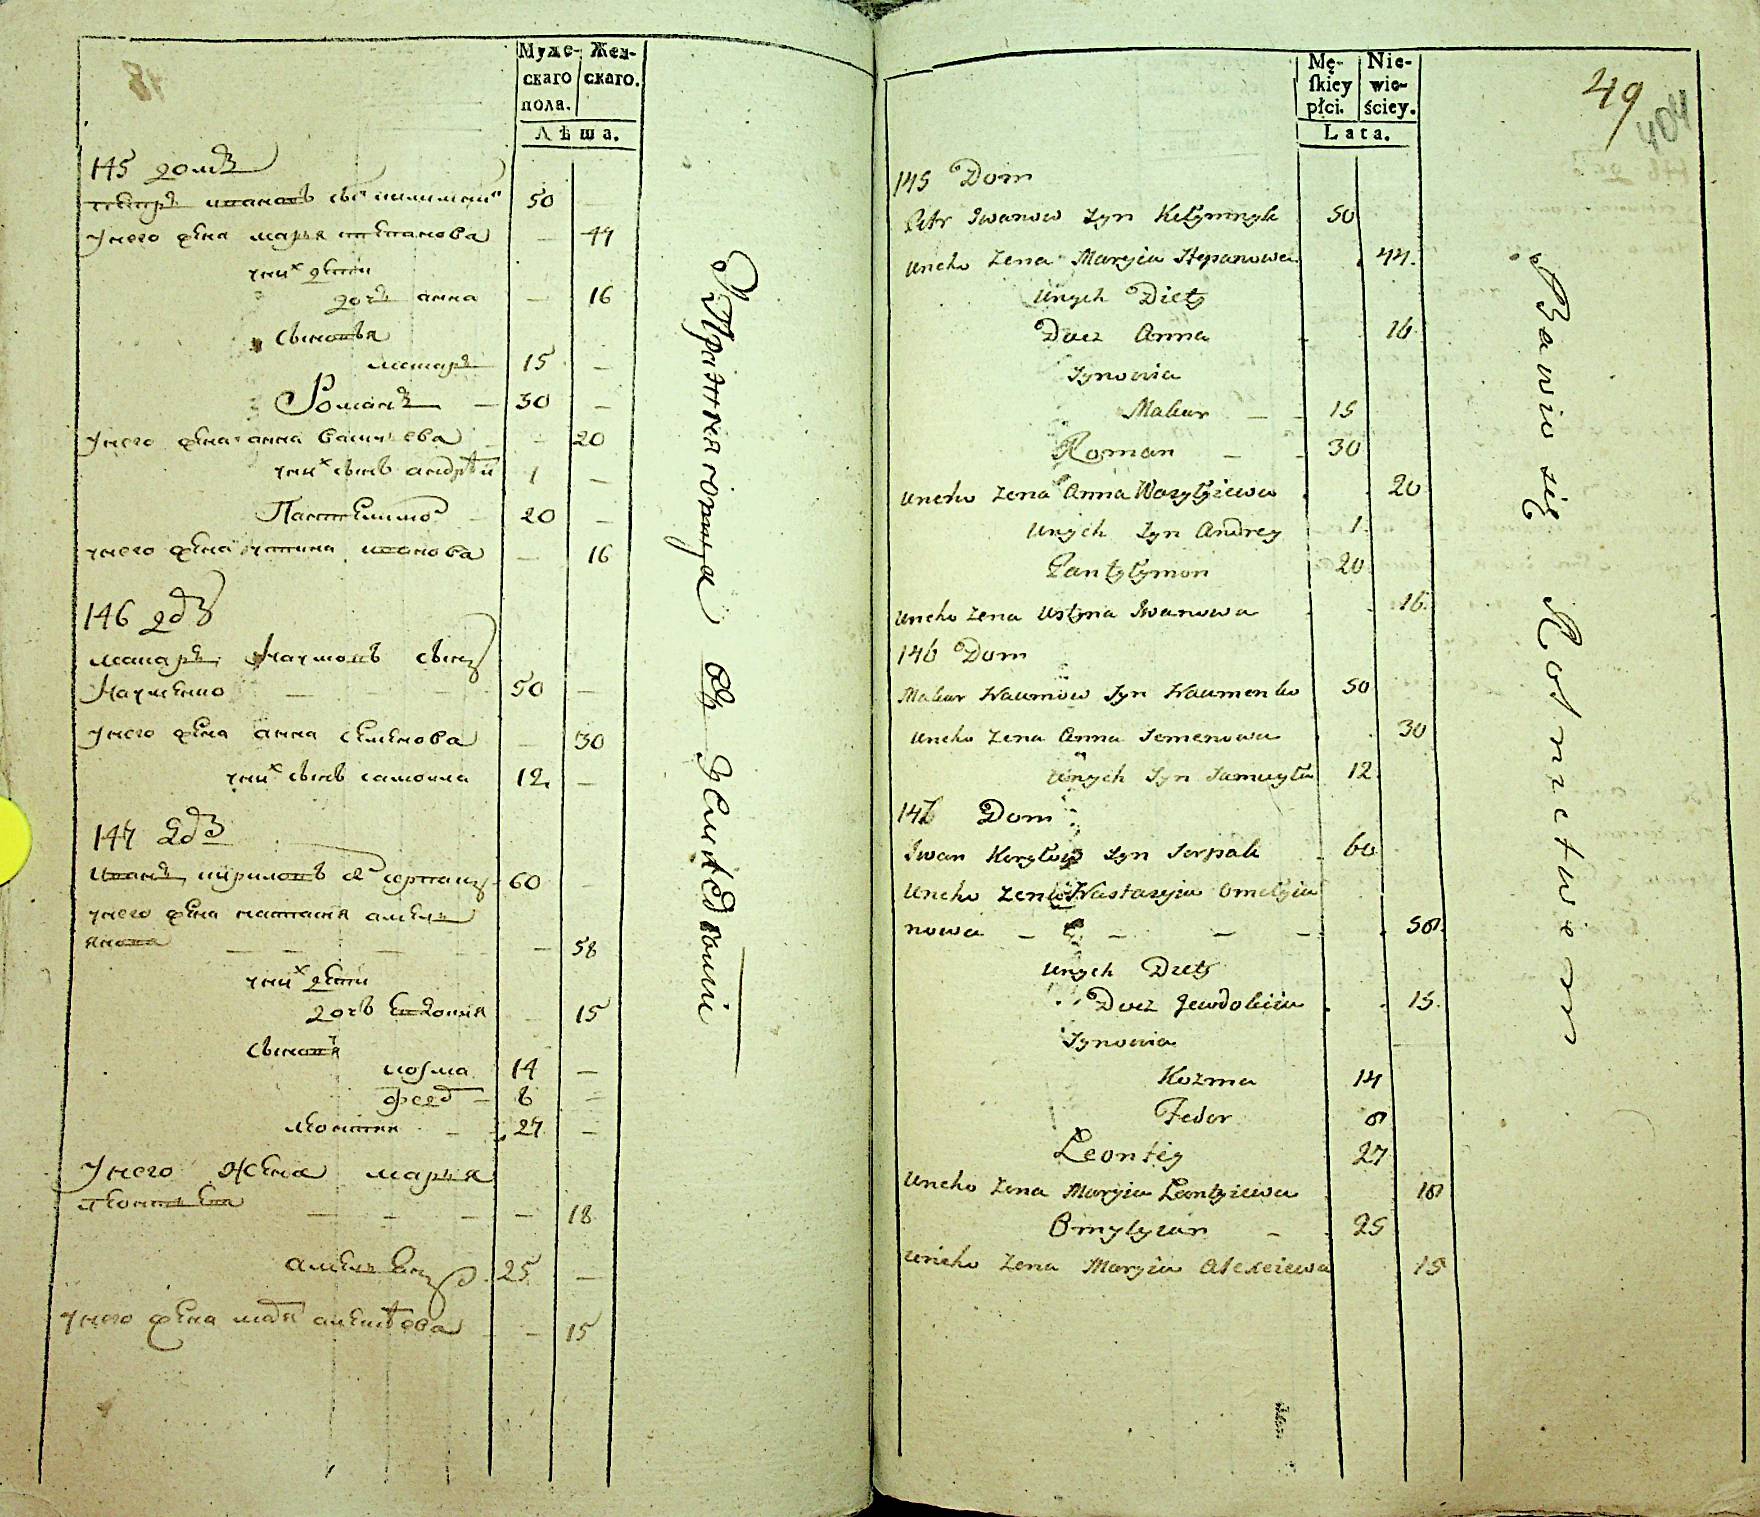 Муже-
скаго
пола.
Жен-
скаго.
Лѣта.
145 домъ
Петръ Ивановъ сынъ 50
У него жена Марья Степанова — 44
у них дети
дочь анна — 16
сыновья
Макаръ 15 —
Романъ — 30 —
У него жена анна Васильева — 20
у них сынъ андрѣй 1 —
Пантелимонъ — 20 —
у него жена устина иванова — 16
146 дз
Макаръ Наумовъ сынъ
Науменко — 50 —
У него жена анна Семенова — 30
у них сынъ самоила 12 —
147 дз
Иванъ Кириловъ сынъ 60 —
у него жена настасия амель
янова — — — — 58
у них дети
дочь Евдокия 15
сыновья
козма 14 —
федо — 8 —
Леонтий — 27 —
У него жена марья
Леонтьева — — — — 18
амельянъ 25 —
у него жена мария алексѣева — 15
Упражняются въ земледелии
Mę-
ſkiey
płci.
Nie-
wie-
ściey.
Lata.
49
404
145 Dom
Petr Iwanow Syn 50
Uneho Zena Maryia Stepanowa 44.
Unych Diety
Docz Anna 16
Synowia
Makar — 15
Roman — 30
Uneho Zena Anna Wasylyiewa 20
Unych Syn Andrey 1
Pantylymon 20
Uneho Zena Ustyna Iwanowa 16
146 Dom
Makar Naumow Syn Naumenko 50
Uneho Zena Anna Semenowa 30
Unych Syn Samuyła 12
147 Dom
Iwan Kiryłow Syn Serpak 60
Uneho Zena Nastasyia Omelyia
nowa — — — — 58
Unych Diety
Docz Jewdokiia 15
Synowia
Kozma 14
Fedor 8
Leontiy 27
Uneho Zena Maryia Leontyiewa 18
Omylyian — 25
Uneho Zena Maryia Alexeiewa 15
Bawiw się Rolnictwem